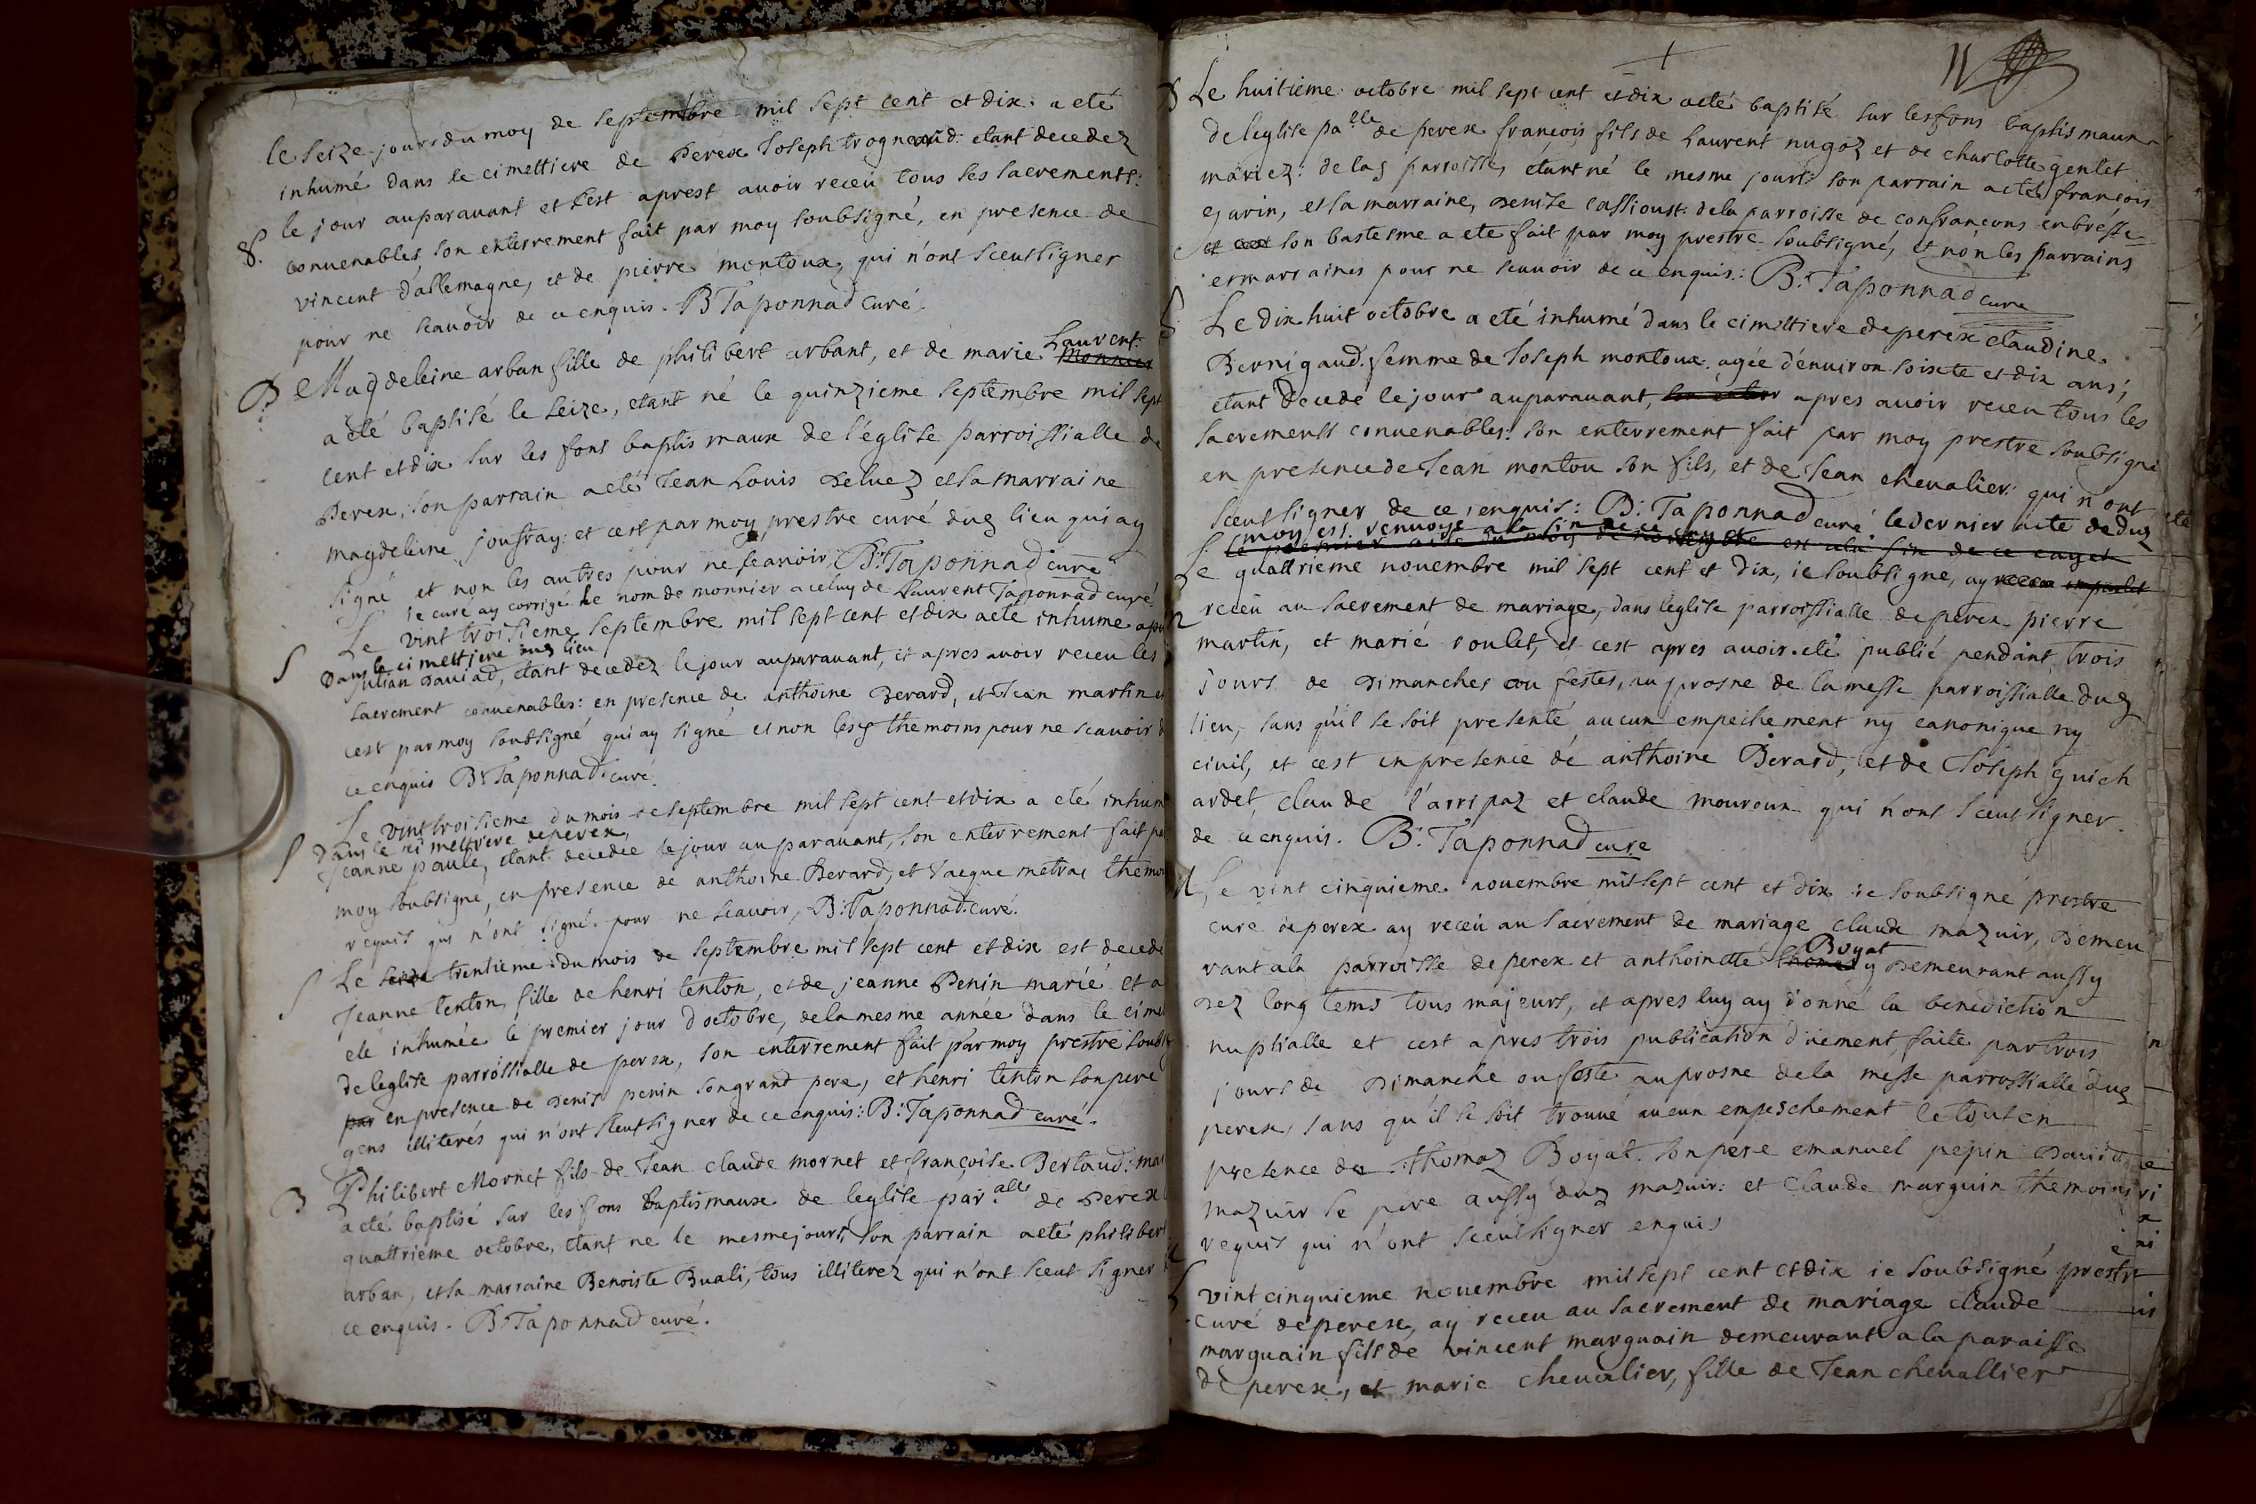 le seize jours du moy de septembre mil sept cent et dix. a eté
inhumé dans le cimettiere de Perex Joseph trognard: etant decedez
le jour auparavant et s'est aprest avoir receu tous ses sacrements:
S. convenables son enterrement fait par moy soubsigné, en presence de
vincent d'allemagne, et de pierre montoux, qui n'ont sceut signer
pour ne scauoir de ce enquis. B: Taponnad Curé.
Laurent.
B. Magdeleine arban fille de philibert arbant, et de marie Monnier
a eté baptisé le seize, etant né le quinzieme septembre mil sept
cent et dix sur les fons baptis maux de l'église parroissialle de
Perex, son parrain a eté Jean Louis Deluez et sa marraine
magdeleine joufray: et cest par moy prestre curé dud lieu qui ay
signé et non les autres pour ne scavoir, B: Taponnad cure
ie curé ay corrigé le nom de monnier a celuy de Laurent Taponnad curé.
S Le vint troisieme septembre mil sept cent et dix a eté inhume
Dans le cimettiere dud lieu
Julian Daviad, etant decedez le jour auparavant, et apres avoir receu les
sacrement convenables: en presence de anthoine Berard, et Jean martin et
cest par moy soubsigné qui ay signé et non lesd themoins pour ne scavoir d
ce enquis B: Taponnad curé.
S Le vint troisieme du mois de septembre mil sept cent et dix a eté inhum
Dans le cimettiere de perex,
Jeanne paule, etant decedée le jour auparavant, son enterrement fait pa
moy soubsigné, en presence de anthoine Berard, et Jacque metrac themo
requis qui n'ont signé pour ne scavoir, B: Taponnad curé.
S Le trentieme du mois de septembre mil sept cent et dix est decede
Jeanne tenton, fille de henri tenton, et de jeanne Penin marié et a
eté inhumée le premier jour d'octobre, de la mesme année dans le cimet
de leglise parroissialle de perex, son enterrement fait par moy prestre soubs
par en presence de Denis penin son grand pere, et henri tenton son pere
gens illiterés qui n'ont sceut signer de ce enquis: B: Taponnad curé.
B Philibert Mornet fils de Jean claude mornet et françoise Bertaud: mar
a eté baptisé sur les fons Baptismaux de leglise par alle de Perex
quattrieme octobre, etant ne le mesme jours, son parrain a eté philibert
arban, et sa marraine Benoiste Buati, tous illiterez qui n'ont sceut signer
ce enquis. B: Taponnad curé.
Le huitieme octobre mil sept cent et dix a eté baptisé sur les fons baptis maux
de leglise pa lle de perex françois fils de Laurent nugoz et de charlotte genlet
mariez: de lad parroisse, etant né le mesme jours son parrain a eté françois
garin, et sa marraine, Denise cassioust: de la parroisse de confrançons en bresse
et son bastesme a ete fait par moy prestre soubsigné, et non les parrains
et marraines pour ne scavoir de ce enquis.: B: Taponnad cure
Le dix huit octobre a eté inhumé dans le cimettiere de perex claudine
Bernigaud. femme de Joseph montoux. agée d'environ soixte et dix ans,
etant Decede le jour auparavant, apres avoir receu tous les
sacrements convenables: son enterrement fait par moy prestre soubsigné
en presence de Jean montou son fils, et de Jean chevalier: qui n'ont
sceut signer de ce, enquis: B: Taponnad curé le dernier acte dedud
moy est renvoyé a la fin de ce
le premier acte du moy de novembre est a la fin de ce cayet
Le quattrieme novembre mil sept cent et dix, ie soubsigne, ay
receu au sacrement de mariage, dans l'eglise parroissialle de perex pierre
martin, et marié roulet, et cest apres avoir eté publié pendant trois
jours de Dimanches ou festes, au prosne de la messe parroissialle dud
lieu, sans qu'il se soit presenté, aucun empeschement ny canonique ny
civil, et cest en presence de anthoine Berard, et de Joseph guich
ardet, claude l'arripaz et claude mouroux qui n'ont sceut signer.
de ce enquis. B: Taponnad cure
Le vint cinquieme novembre mil sept cent et dix ie soubsigné prestre
cure de perex ay receu au sacrement de mariage claude mazuir, Demeu
Boyat
rant a la parroisse de perex et anthoinette thomas y Demeurant aussy
dez long tems tous majeurs, et apres luy ay donné la benediction
nuptialle et cest apres trois publication d'iement faite par trois
jours de Dimanche ou feste au prosne de la messe parrossialle dud
perex, sans qu'il se soit trouvé aucun empeschement le tout en
presence de thomaz Boyat. son pere emanuel pepin David
mazuir le pere aussy dud mazuir: et Claude marguin themoins
requis qui n'ont sceut signer enquis
vint cinquieme novembre mil sept cent et dix ie soubsigné prestre
curé de perex, ay receu au sacrement de mariage claude
marguain fils de vincent marguain demeurant a la paraisse
de perex, et marie chevalier, fille de Jean chevallier